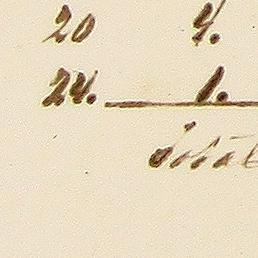 20 4.
24. 1.
Total